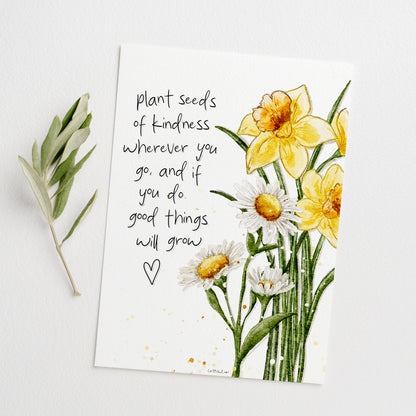 plant seeds
of kindness
wherever you
go, and if
you do
good things
will grow